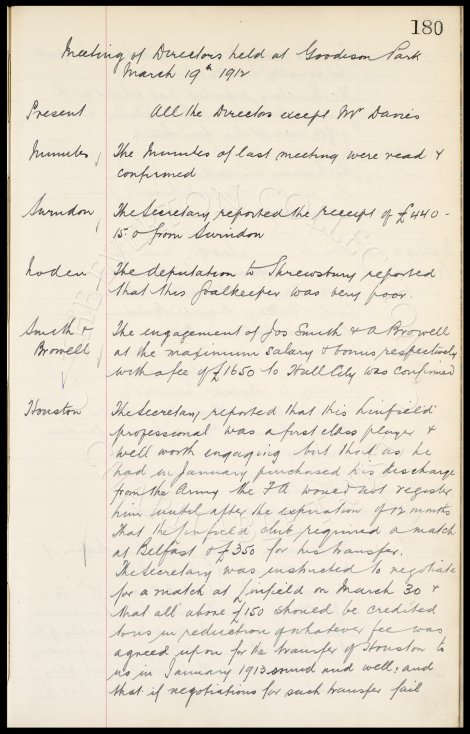 180
Meeting of Directors held at Goodison Park
March 19th 1912
Present All the Directors except Mr Davies
Minutes The Minutes of last meeting were read &
confirmed
Swindon The Secretary reported the receipt of £440-
15-0 from Swindon
Noden The deputation to Shrewsbury reported
that this Goalkeeper was very poor.
Smith & The engagement of Jos Smith & A Browell
Browell at the maximum salary & bonus respectively
with a fee of £1650 to Hull City was confirmed
Houston The Secretary reported that this Linfield
professional was a first class player &
well worth engaging but that as he
had in January purchased his discharge
from the Army the FA would not register
him until after the expiration of 12 months
That the Linfield club required a match
at Belfast & £350 for his transfer.
The Secretary was instructed to negotiate
for a match at Linfield on March 30 &
that all above £150 should be credited
to us in reduction of whatever fee was
agreed upon for the transfer of Houston to
us in January 1913 sound and well: and
that if negotiations for such transfer fail
THE EVERTON COLLECTION